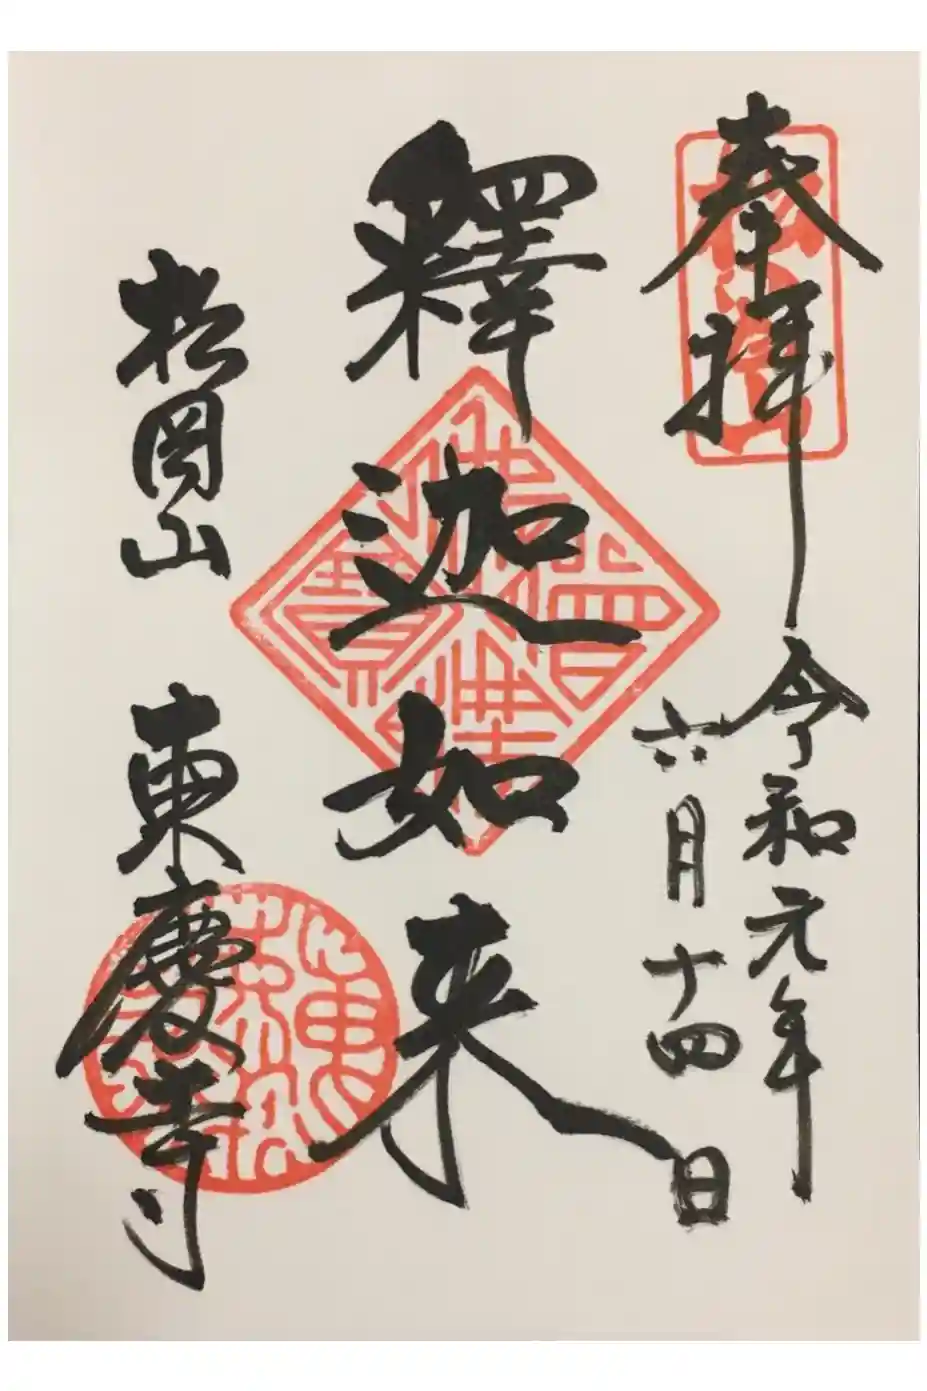 奉拝
令和元年
六月十四日
釋迦如来
松岡山 東慶寺